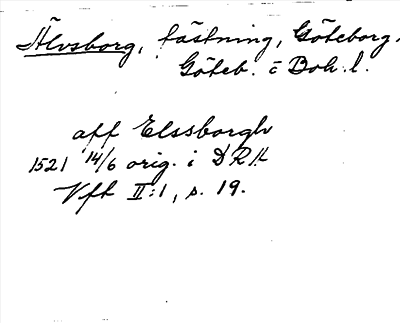 Älvsborg, fästning, Göteborg.
Göteb. o Boh. l.
aff Elssborgh
1521 14/6 orig. i DRA
Vfh II:1, s. 19.